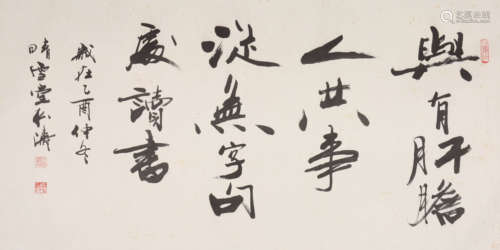 與有肝膽
人共事
從無字句
處讀書
歲在乙酉仲冬
晴雪堂松濤